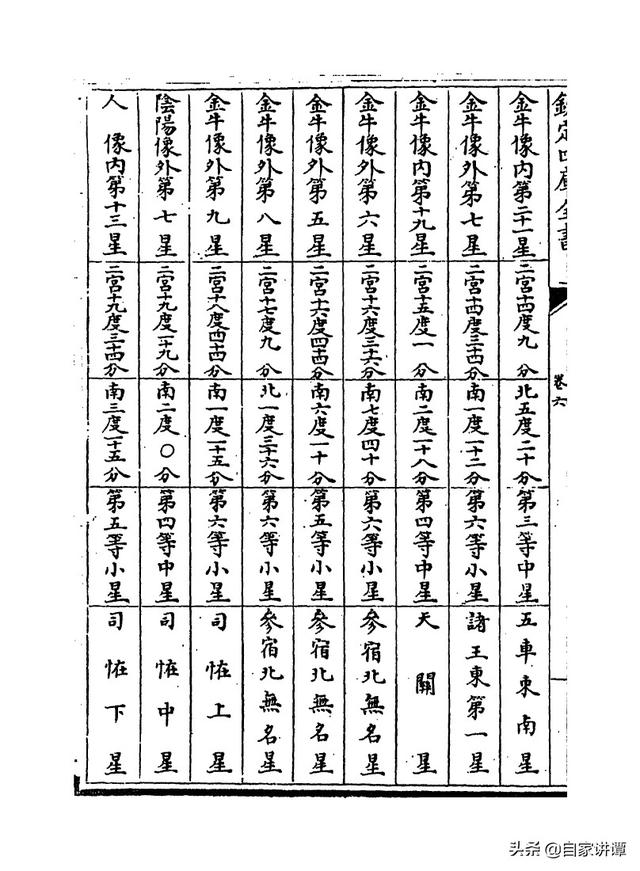 欽定四庫全書
卷六
金牛像內第二十一星 二宮十四度九分 北五度二十分 第三等中星 五車東南星
金牛像外第七星 二宮十四度三十四分 南一度一十二分 第六等小星 諸王東第一星
金牛像內第十九星 二宮十五度一分 南二度一十八分 第四等中星 天關星
金牛像外第六星 二宮十六度三十六分 南七度四十分 第六等小星 參宿北無名星
金牛像外第五星 二宮十六度四十四分 南六度一十分 第五等小星 參宿北無名星
金牛像外第八星 二宮十七度九分 北一度三十六分 第六等小星 參宿北無名星
金牛像外第九星 二宮十八度四十四分 南一度一十五分 第六等小星 司恠上星
陰陽像外第七星 二宮十九度一十九分 南二度〇分 第四等中星 司恠中星
人像內第十三星 二宮十九度三十四分 南三度一十五分 第五等小星 司恠下星
头条 @自家讲谭